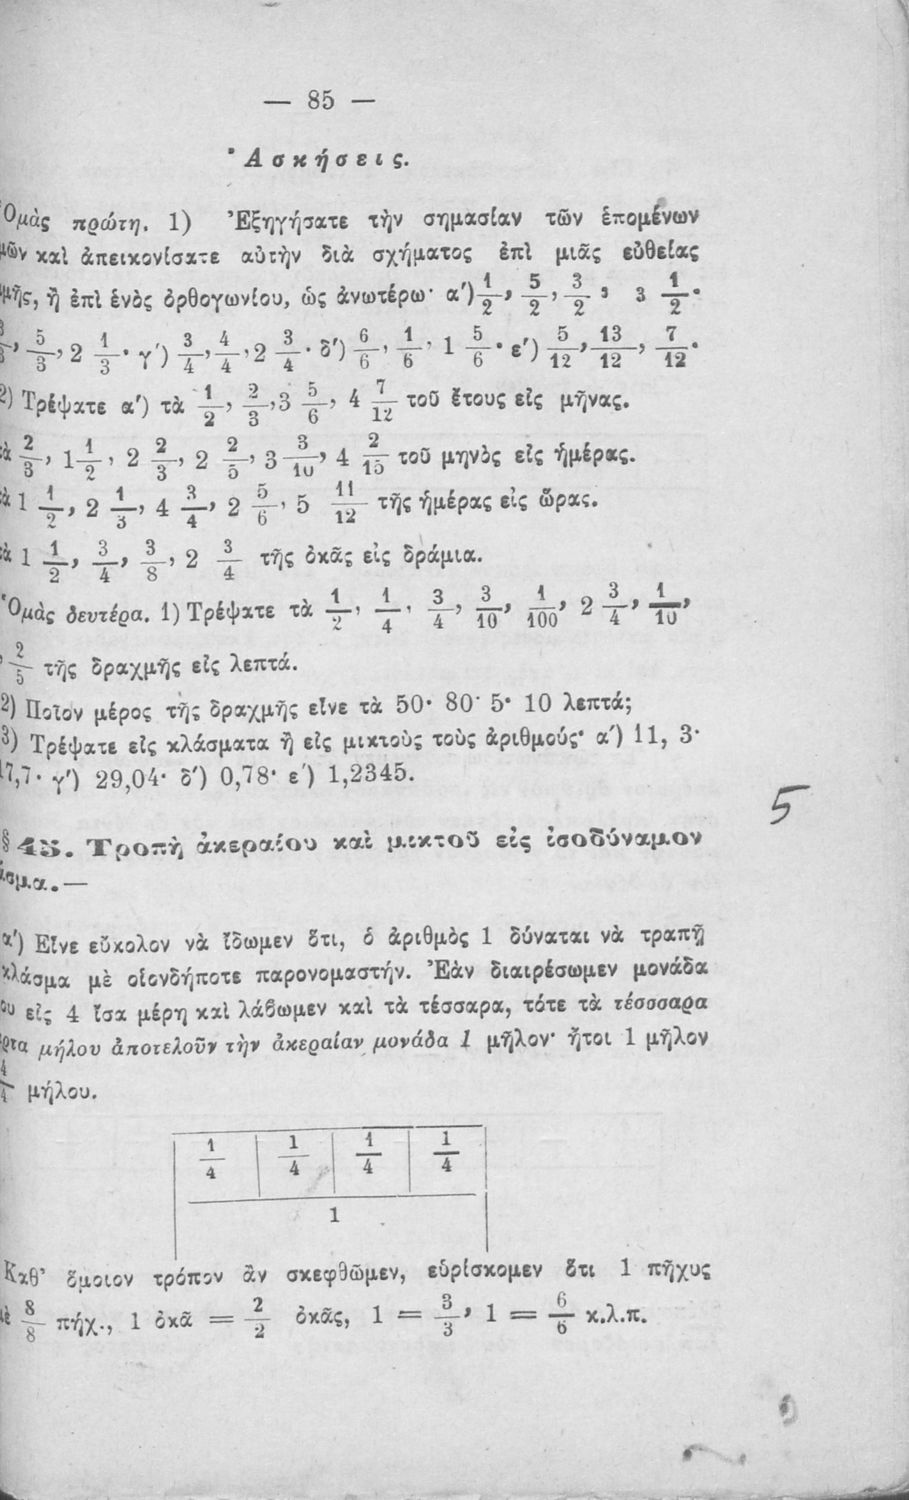 — 85 —
Ἀσκήσεις.
Ὁμὰς πρώτη. 1) Ἐξηγήσατε τὴν σημασίαν τῶν ἑπομένων
μῶν καὶ ἀπεικονίσατε αὐτὴν διὰ σχήματος ἐπὶ μιᾶς εὐθείας
μμῆς, ἢ ἐπὶ ἑνὸς ὀρθογωνίου, ὡς ἀνωτέρω· α′) 1/2, 5/2, 3/2, 3 1/2·
5/3, 2 1/3· γ′) 3/4, 4/4, 2 3/4· δ′) 6/6, 1/6, 1 5/6· ε′) 5/12, 13/12, 7/12·
2) Τρέψατε α′) τὰ 1/2, 2/3, 3 5/6, 4 7/12 τοῦ ἔτους εἰς μῆνας.
τὰ 2/3, 1 1/2, 2 2/3, 2 2/5, 3 3/10, 4 2/15 τοῦ μηνὸς εἰς ἡμέρας.
τὰ 1 1/2, 2 1/3, 4 3/4, 2 5/6, 5 11/12 τῆς ἡμέρας εἰς ὥρας.
τὰ 1 1/2, 3/4, 3/8, 2 3/4 τῆς ὀκᾶς εἰς δράμια.
Ὁμὰς δευτέρα. 1) Τρέψατε τὰ 1/2, 1/4, 3/4, 3/10, 1/100, 2 3/4, 1/10,
2/5 τῆς δραχμῆς εἰς λεπτά.
2) Ποῖον μέρος τῆς δραχμῆς εἶνε τὰ 50· 80· 5· 10 λεπτά;
3) Τρέψατε εἰς κλάσματα ἢ εἰς μικτοὺς τοὺς ἀριθμούς· α′) 11, 3·
17,7· γ′) 29,04· δ′) 0,78· ε′) 1,2345.
5
§ 45. Τροπὴ ἀκεραίου καὶ μικτοῦ εἰς ἰσοδύναμον
άσμα.—
α′) Εἶνε εὔκολον νὰ ἴδωμεν ὅτι, ὁ ἀριθμὸς 1 δύναται νὰ τραπῇ
κλάσμα μὲ οἱονδήποτε παρονομαστήν. Ἐὰν διαιρέσωμεν μονάδα
ου εἰς 4 ἴσα μέρη καὶ λάβωμεν καὶ τὰ τέσσαρα, τότε τὰ τέσσσαρα
ρτα μήλου ἀποτελοῦν τὴν ἀκεραίαν μονάδα 1 μῆλον· ἤτοι 1 μῆλον
4/4 μήλου.
1/4 1/4 1/4 1/4
1
Καθ’ ὅμοιον τρόπον ἂν σκεφθῶμεν, εὑρίσκομεν ὅτι 1 πῆχυς
μὲ 8/8 πήχ., 1 ὀκᾶ = 2/2 ὀκᾶς, 1 = 3/3, 1 = 6/6 κ.λ.π.